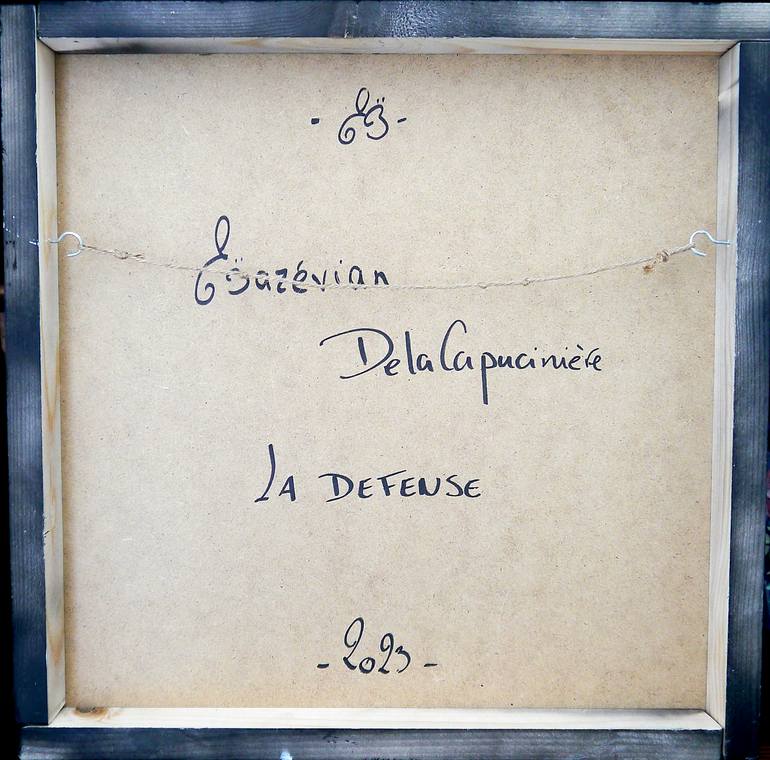 Bazévian
DelaCapucinière
LA DEFENSE
- 2023 -